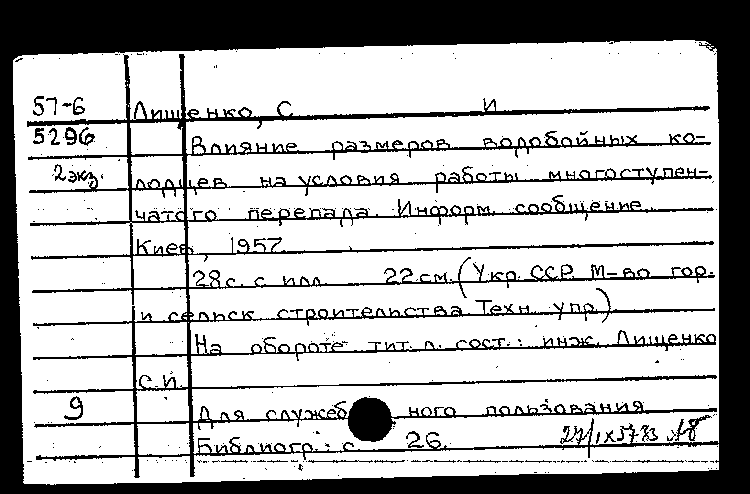 57-6 Лищенко, С И
5296 Влияние размеров водобойных ко-
2 экз. лодцев на условия работы многоступен-
чатого перепада. Информ. сообщение.
Киев, 1957.
28 с. с илл. 22 см. (Укр. ССР. М-во гор.
и сельск. строительства. Техн. упр.)
На обороте тит. л. сост.: инж. Лищенко
С.И.
9 Для служебного пользования
Библиогр.: с. 26.